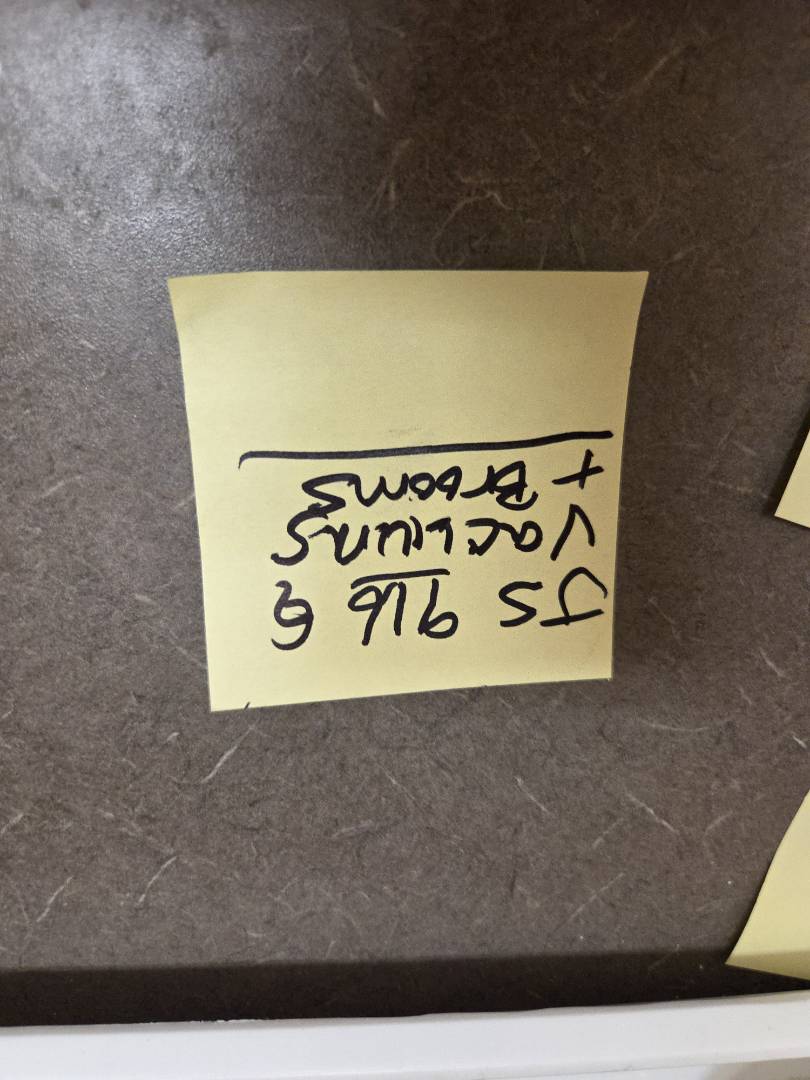 JS 916
Vacuums
+ Brooms